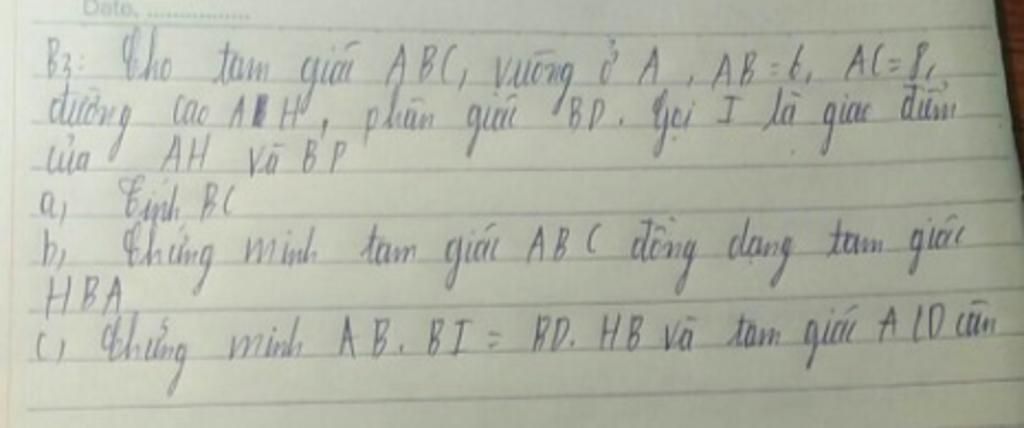 Date. ..............
B3: Cho tam giác ABC, vuông ở A, AB = 6, AC = 8,
đường cao AH, phân giác BD. Gọi I là giao điểm
của AH và BD
a, Tính BC
b, Chứng minh tam giác ABC đồng dạng tam giác
HBA
c, Chứng minh AB. BI = BD. HB và tam giác AID cân